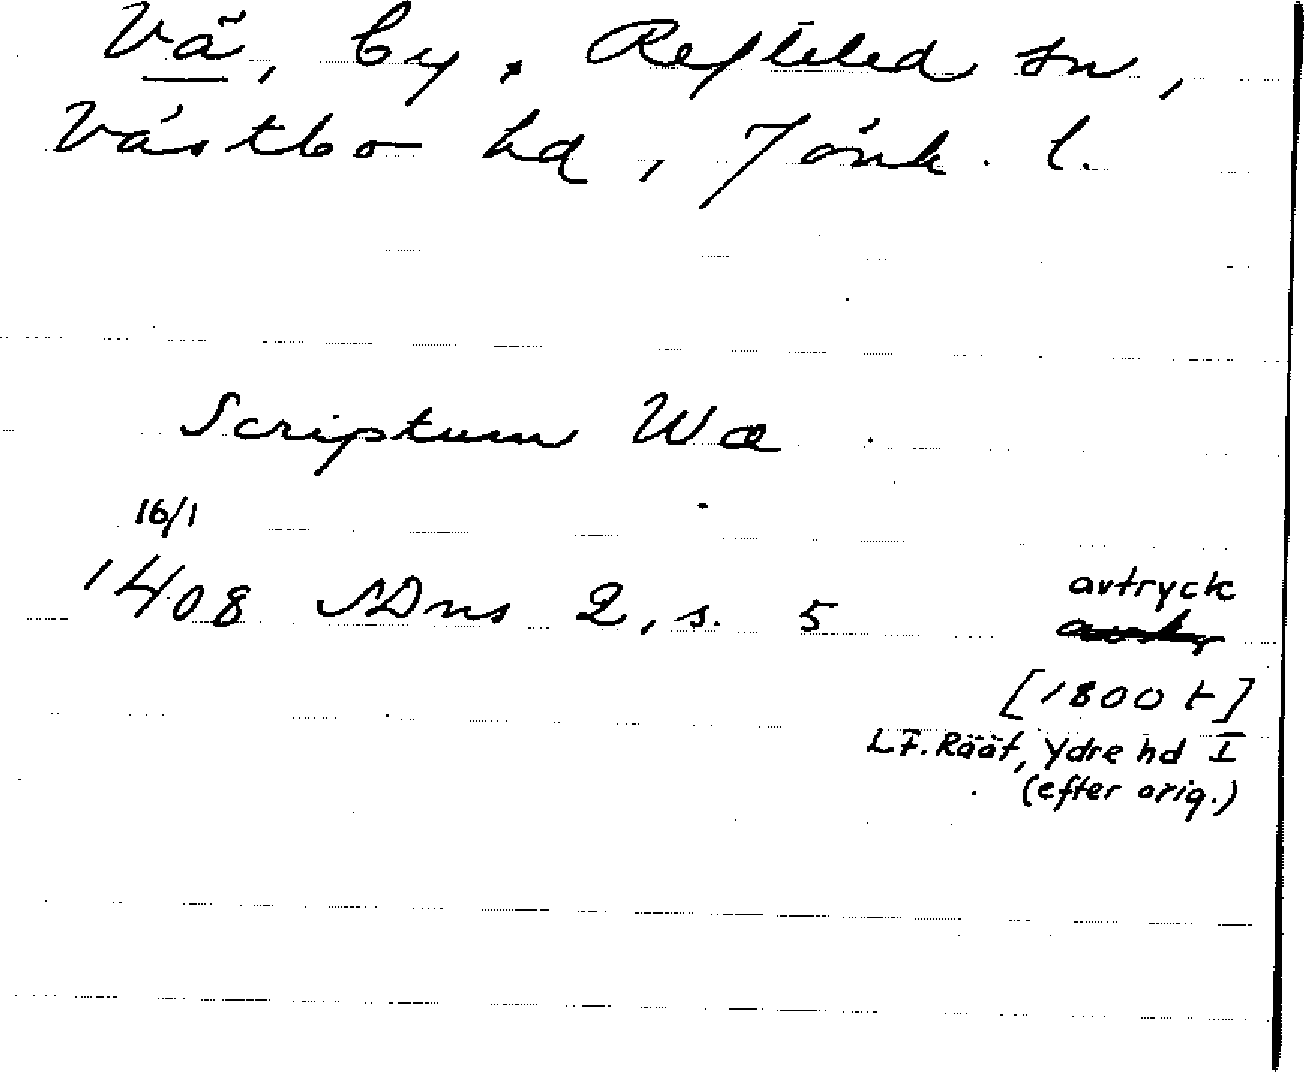 Vä, by, Refteled sn,
Västbo hd, Jönk. l.
Scriptum Wæ
16/1
1408 SDns 2, s. 5
avtryck
[1800 t]
L.F. Rääf, Ydre hd I
(efter orig.)